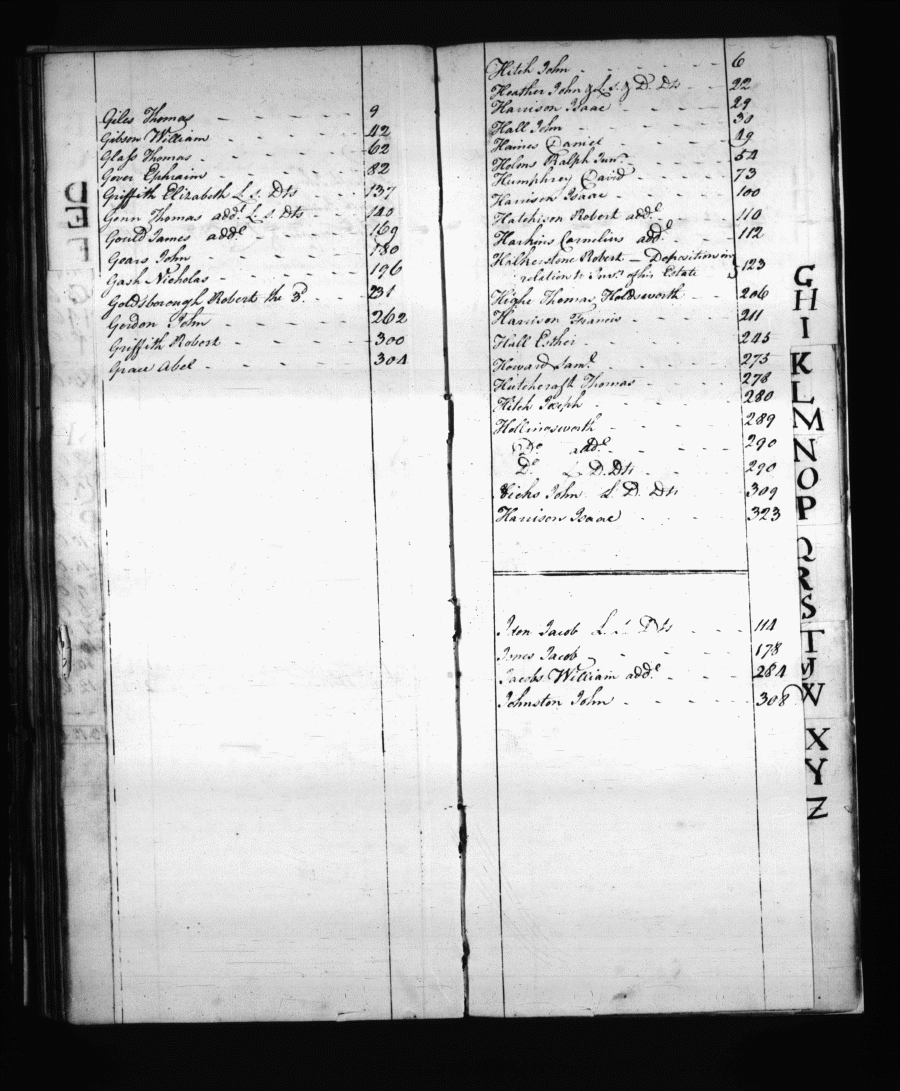 Giles Thomas - - - - - 9
Gibson William - - - - 42
Glass Thomas - - - - - 62
Gover Ephraim - - - - 82
Griffith Elizabeth L. s. Dts - - 137
Genn Thomas addl L. s. Dts - - 140
Gould James addl - - - - 169
Gears John - - - - 180
Gash Nicholas - - - - 196
Goldsborough Robert the 3d - - 231
Gordon John - - - - 262
Griffith Robert - - - - 300
Grace Abel - - - - 304
D
E
F
Hitch John - - - - - 6
Heather John & L. s. & D. Dts - - 22
Harrison Isaac - - - - 29
Hall John - - - - - 30
Haines Daniel - - - - 49
Helens Ralph Junr - - - - 54
Humphrey David - - - - 73
Harrison Isaac - - - - 100
Hatchison Robert addl - - 110
Harkins Cornelius addl - - 112
Robert - Deposition in
relation to Invy of his Estate 123
Highe Thomas Holdsworth - - 206
Harrison Francis - - - - 211
Hall Esther - - - - 245
Howard Saml - - - - 275
Hutchcraft Thomas - - - - 278
Hitch Joseph - - - - 280
Hollingsworth - - - - 289
Do addl - - - - 290
Do L. D. Dts - - - - 290
Hicks John L. D. Dts - - 309
Harrison Isaac - - - - 323
Jacob L. s. Dts - - - 114
Jones Jacob - - - - 178
Jacobs William addl - - - 284
Johnston John - - - - 308
G
H
I
K
L
M
N
O
P
Q
R
S
T
W
X
Y
Z